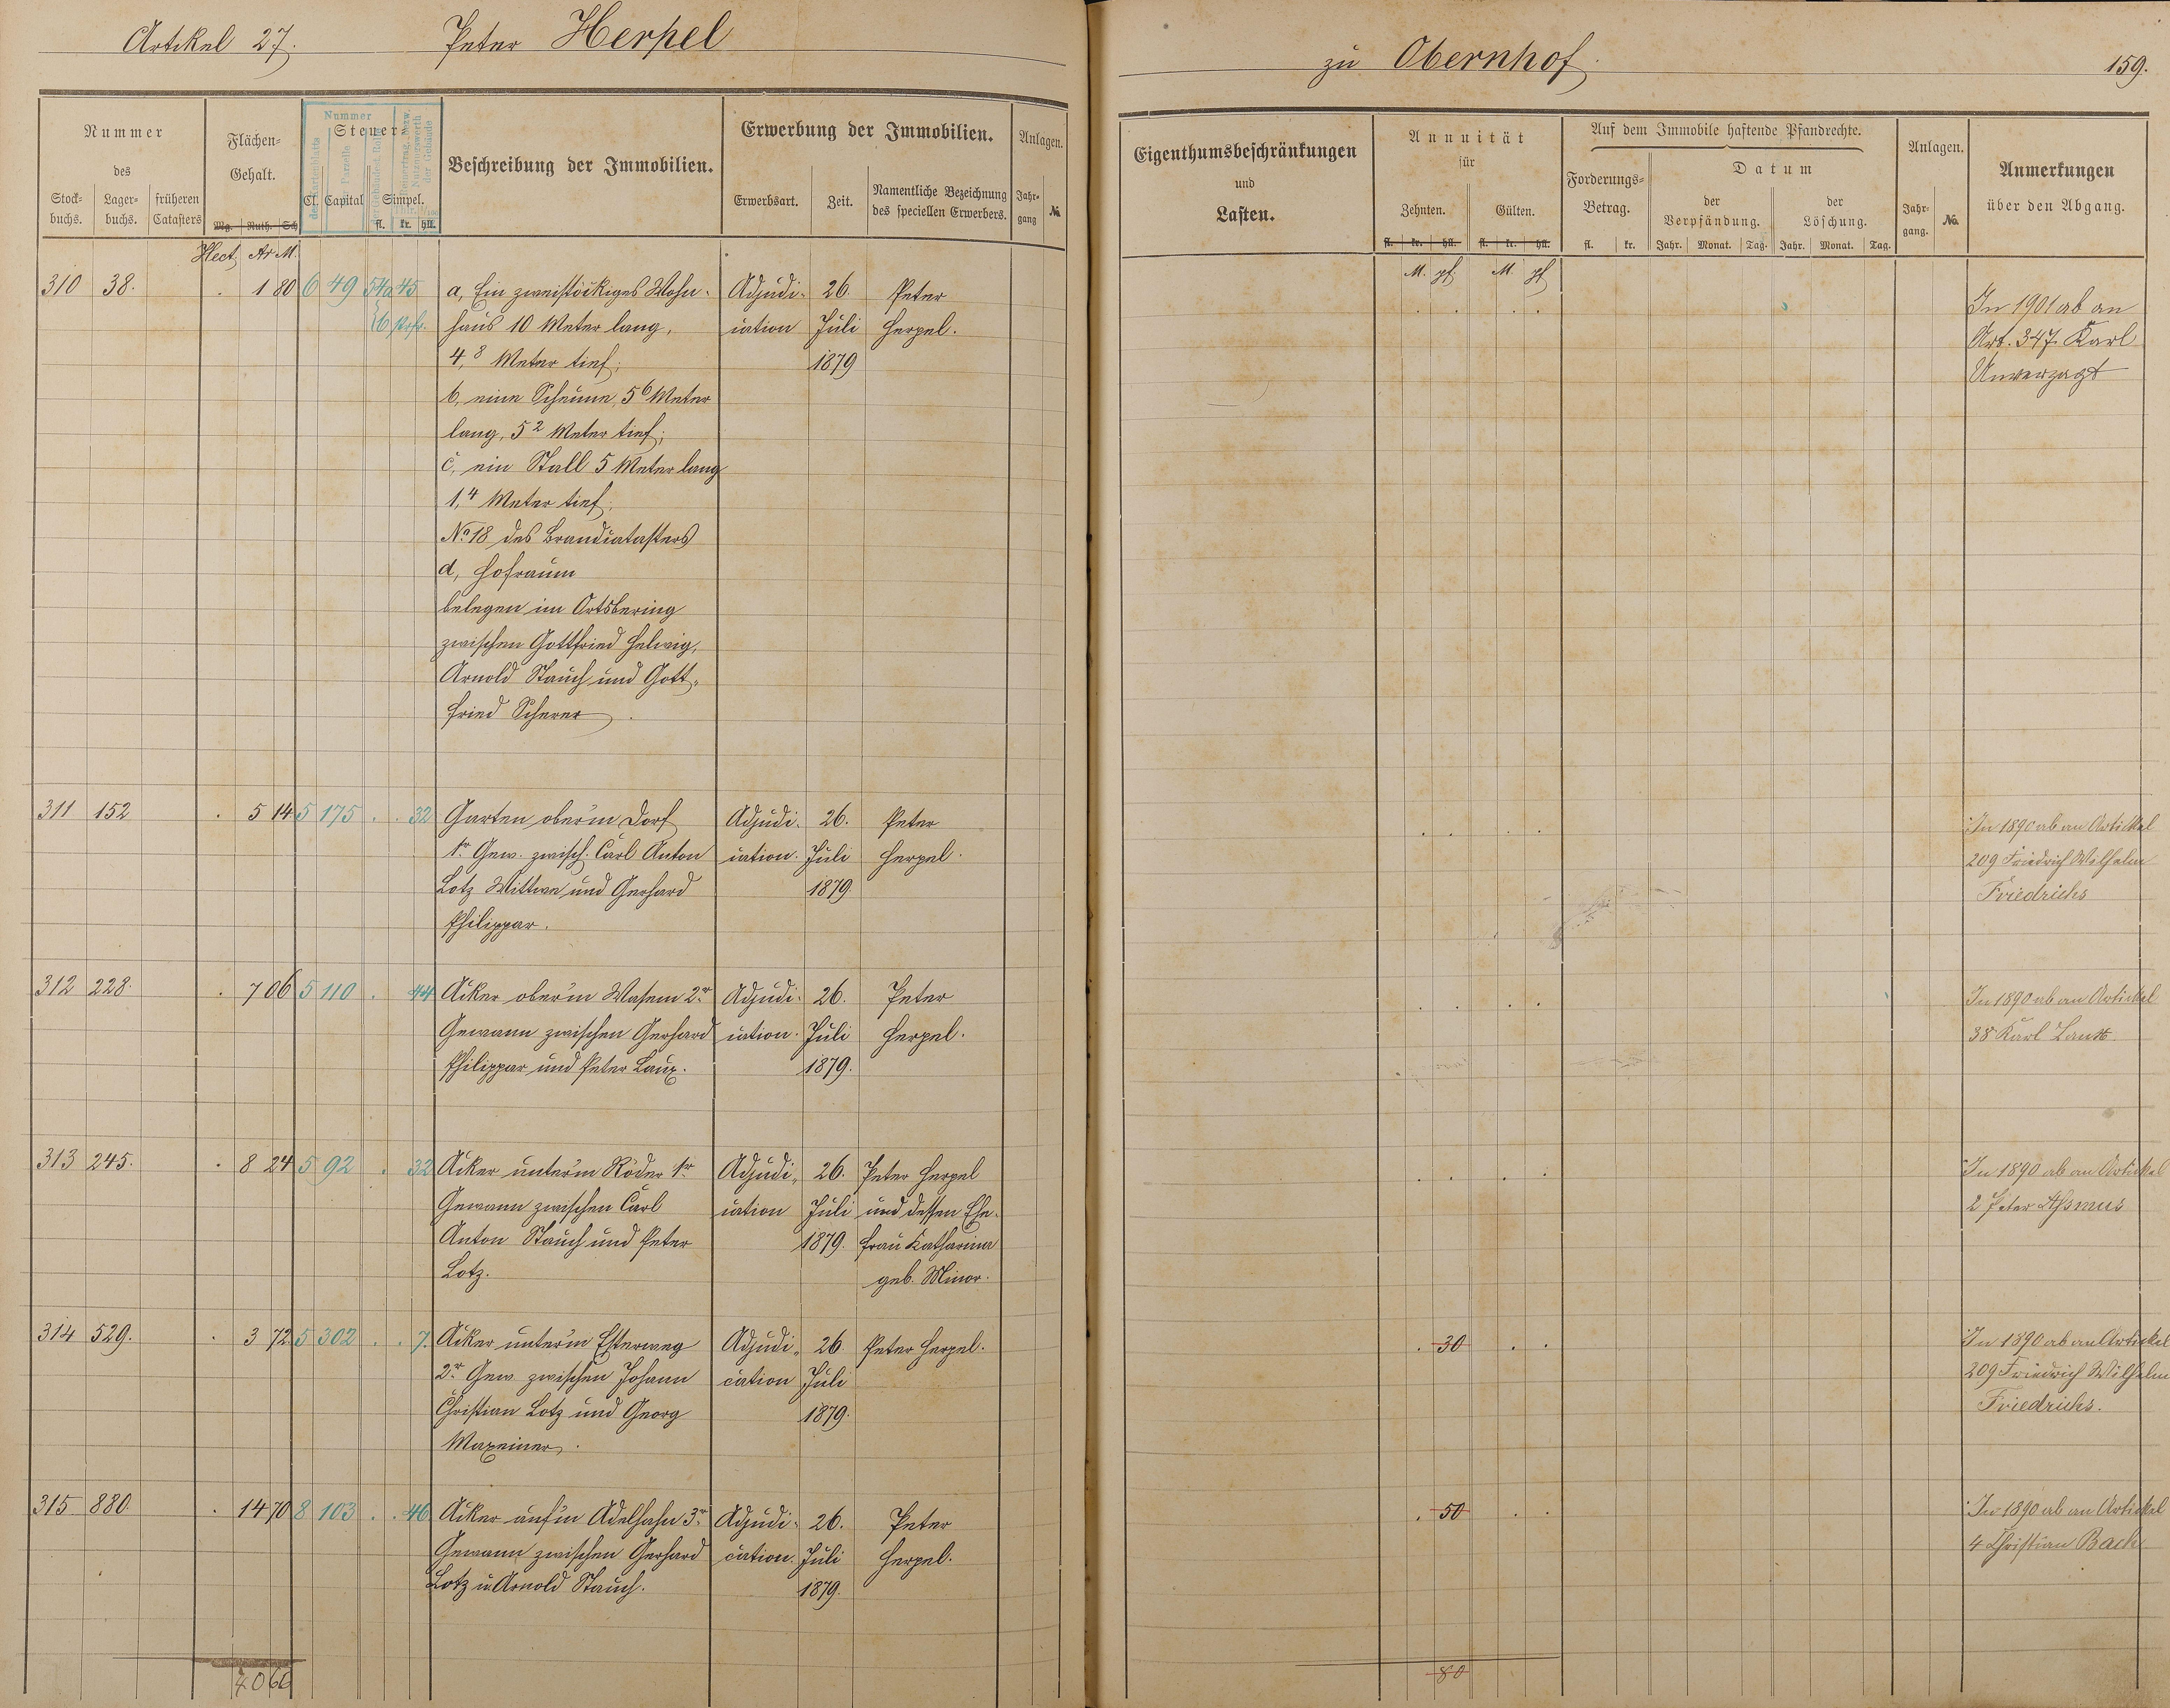 Artikel 27. Peter Herpel
zu Obernhof. 159.
Nummer
des
Stock-
buchs.
Lager-
buchs.
früheren
Catasters
Flächen-
Gehalt.
Mg. Ruth. Sch
Hect. Ar M.
Nummer
Steuer
Cl. Capital Simpel.
fl. kr. hll.
Beschreibung der Immobilien.
Erwerbung der Immobilien.
Erwerbsart. Zeit.
Namentliche Bezeichnung
des speciellen Erwerbers.
Anlagen.
Jahr-
gang
No.
Eigenthumsbeschränkungen
und
Lasten.
Annuität
für
Zehnten. Gülten.
fl. kr. hll. fl. kr. hll.
M. pf M. pf
Auf dem Immobile haftende Pfandrechte.
Forderungs-
Betrag.
fl. kr.
Datum
der
Verpfändung.
der
Löschung.
Jahr. Monat. Tag. Jahr. Monat. Tag.
Anlagen.
Jahr-
gang.
No.
Anmerkungen
über den Abgang.
310 38. 1 80 6 49 54a 45
a, Ein zweistöckiges Wohn-
haus 10 Meter lang,
4,8 Meter tief;
b, eine Scheune, 5 6 Meter
lang, 5 2 Meter tief;
c, ein Stall 5 Meter lang
1,4 Meter tief;
No. 18 des Brandcatasters
d, Hofraum
belegen im Ortsbering
zwischen Gottfried Helwig,
Arnold Stauch und Gott-
fried Scherer.
Adjudi-
cation
26.
Juli
1879
Peter
Herpel.
In 1901 ab an
Art. 347. Karl
Unverzagt
311 152 5 14 5 175 32
Garten ober'm Dorf
1r. Gew. zwisch. Carl Anton
Lotz Wittwe und Gerhard
Philippar.
Adjudi-
cation.
26.
Juli
1879
Peter
Herpel.
In 1890 ab an Artickel
209 Friedrich Wilhelm
Friedrichs
312 228. 7 06 5 110 44
Acker ober'm Wasem 2r.
Gewann zwischen Gerhard
Philippar und Peter Laux.
Adjudi-
cation.
26.
Juli
1879.
Peter
Herpel.
In 1890 ab an Artickel
38 Karl Laux
313 245. 8 24 5 92 32
Acker unter'm Röder 1r.
Gewann zwischen Carl
Anton Stauch und Peter
Lotz.
Adjudi-
cation
26.
Juli
1879.
Peter Herpel
und dessen Ehe-
frau Katharina
geb. Minor.
In 1890 ab an Artickel
2 Peter Asmus
314 529. 3 72 5 302 7.
Acker unter'm Esterweg
2r. Gew. zwischen Johann
Christian Lotz und Georg
Maxeiner.
Adjudi-
cation
26.
Juli
1879.
Peter Herpel.
30
In 1890 ab an Artickel
209 Friedrich Wilhelm
Friedrichs.
315 880. 14 70 8 103 46
Acker auf'm Adelhahn 3r.
Gewann zwischen Gerhard
Lotz u Arnold Stauch.
Adjudi-
cation.
26.
Juli
1879.
Peter
Herpel.
50
In 1890 ab an Artickel
4 Christian Bach
40 66
80